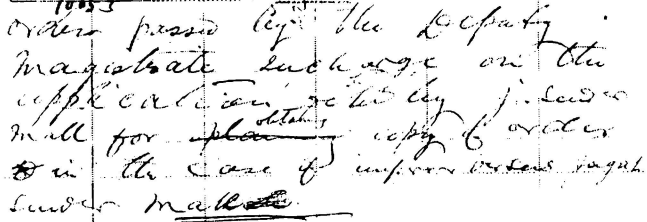 orders passed by the Deputy
Magistrate Incharge on the
application filed by J. Sunder
Mall for obtaining copy of order
in the case of Emperor versus Jagat
Sunder Mall